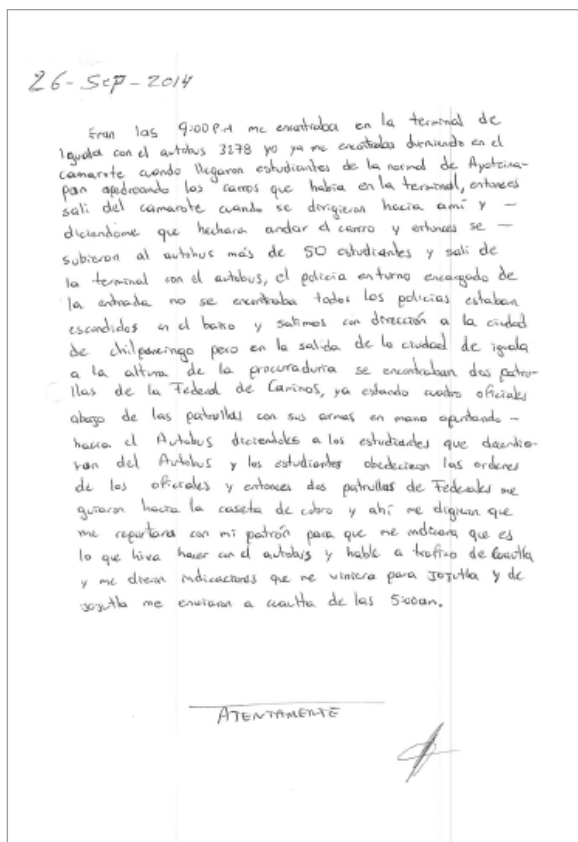 26-Sep-2014
Eran las 9:00 P.M me encontraba en la terminal de
Iguala con el autobus 3278 yo ya me encontraba durmiendo en el
camarote cuando llegaron estudiantes de la normal de Ayotzina-
pan apedreando los carros que habia en la terminal, entonces
sali del camarote cuando se dirigieron hacia ami y —
diciendome que hechara andar el carro y entonces se —
subieron al autobus más de 50 estudiantes y sali de
la terminal con el autobus, el policia en turno encargado de
la entrada no se encontraba todos los policias estaban
escondidos en el baño y salimos con dirección a la ciudad
de chilpancingo pero en la salida de la ciudad de iguala
a la altura de la procuraduria se encontraban dos patru-
llas de la Federal de Caminos, ya estando cuatro oficiales
abajo de las patrullas con sus armas en mano apuntando —
hacia el Autobus diciendoles a los estudiantes que decendie-
ran del Autobus y los estudiantes obedecieron las ordenes
de los oficiales y entonces dos patrullas de Federales me
guiaron hacia la caseta de cobro y ahí me digieron que
me reportara con mi patrón para que me indicara que es
lo que hiva hacer con el autobus y hable a trafico de Cuautla
y me dieron indicaciones que me viniera para Jojutla y de
Jojutla me enviaron a cuautla de las 5:00am.
ATENTAMENTE